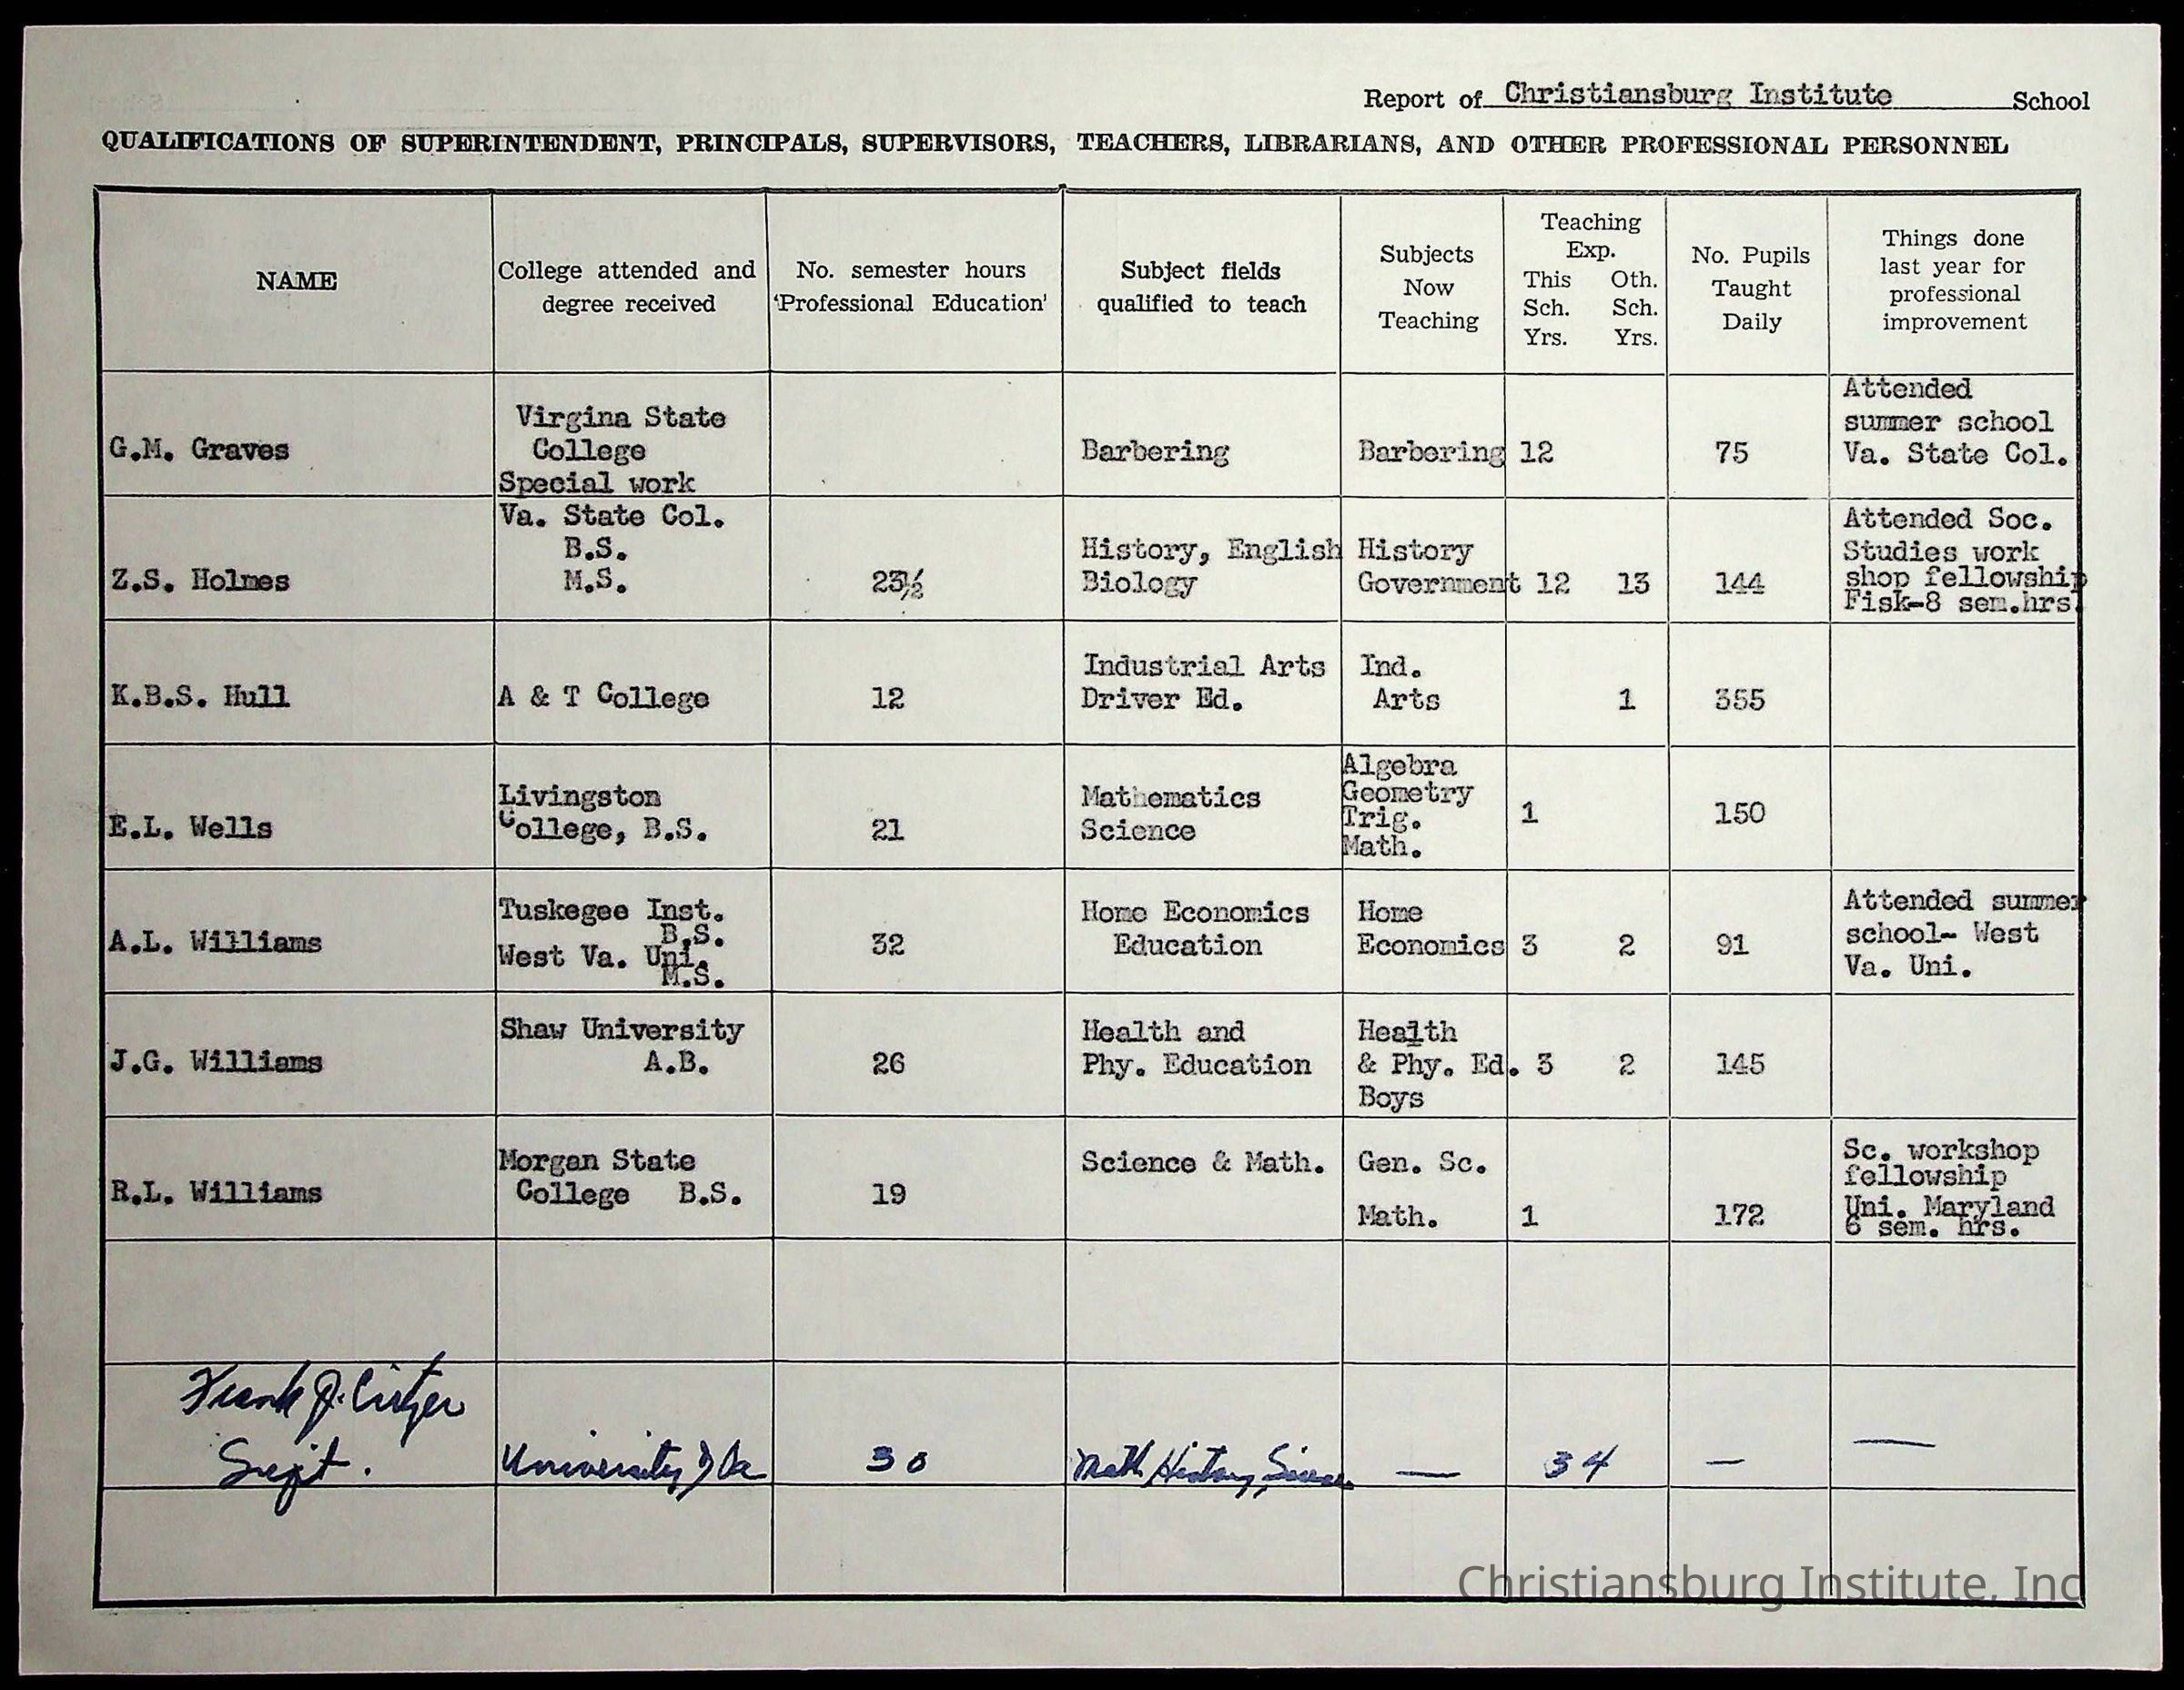 Report of Christiansburg Institute School
QUALIFICATIONS OF SUPERINTENDENT, PRINCIPALS, SUPERVISORS, TEACHERS, LIBRARIANS, AND OTHER PROFESSIONAL PERSONNEL
NAME
College attended and
degree received
No. semester hours
'Professional Education'
Subject fields
qualified to teach
Subjects
Now
Teaching
Teaching
Exp.
This Oth.
Sch. Sch.
Yrs. Yrs.
No. Pupils
Taught
Daily
Things done
last year for
professional
improvement
G.M. Graves
Virgina State
College
Special work
Barbering
Barbering
12
75
Attended
summer school
Va. State Col.
Z.S. Holmes
Va. State Col.
B.S.
M.S.
23½
History, English
Biology
History
Government
12 13
144
Attended Soc.
Studies work
shop fellowship
Fisk-8 sem.hrs.
K.B.S. Hull
A & T College
12
Industrial Arts
Driver Ed.
Ind.
Arts
1
355
E.L. Wells
Livingston
College, B.S.
21
Mathematics
Science
Algebra
Geometry
Trig.
Math.
1
150
A.L. Williams
Tuskegee Inst.
B.S.
West Va. Uni.
M.S.
32
Home Economics
Education
Home
Economics
3 2
91
Attended summer
school- West
Va. Uni.
J.G. Williams
Shaw University
A.B.
26
Health and
Phy. Education
Health
& Phy. Ed.
Boys
3 2
145
R.L. Williams
Morgan State
College B.S.
19
Science & Math.
Gen. Sc.
Math.
1
172
Sc. workshop
fellowship
Uni. Maryland
6 sem. hrs.
Frank J. Critzer
Supt.
University of Va
30
Math, History, Science
—
34
—
—
Christiansburg Institute, Inc